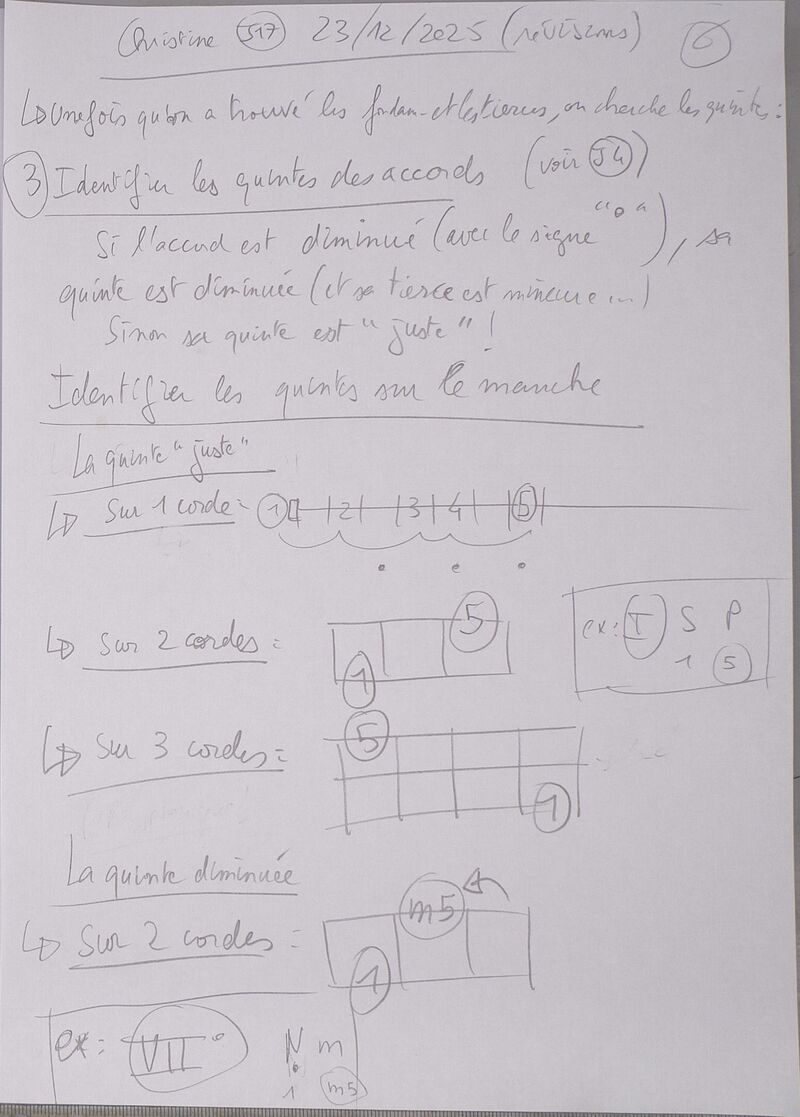 Christine J17 23/12/2025 (révisions) 6
↳ Une fois qu'on a trouvé les fondam. et les tierces, on cherche les quintes :
3 Identifier les quintes des accords (voir J4)
Si l'accord est diminué (avec le signe "°"), sa
quinte est diminuée (et sa tierce est mineure ...)
Sinon sa quinte est "juste" !
Identifier les quintes sur le manche
La quinte "juste"
↳ Sur 1 corde = 1 2 3 4 5
↳ Sur 2 cordes = 1 5
ex : I S P
1 5
↳ Sur 3 cordes = 5 1
La quinte diminuée
↳ Sur 2 cordes = 1 m5
ex : VII° N m
1 m5